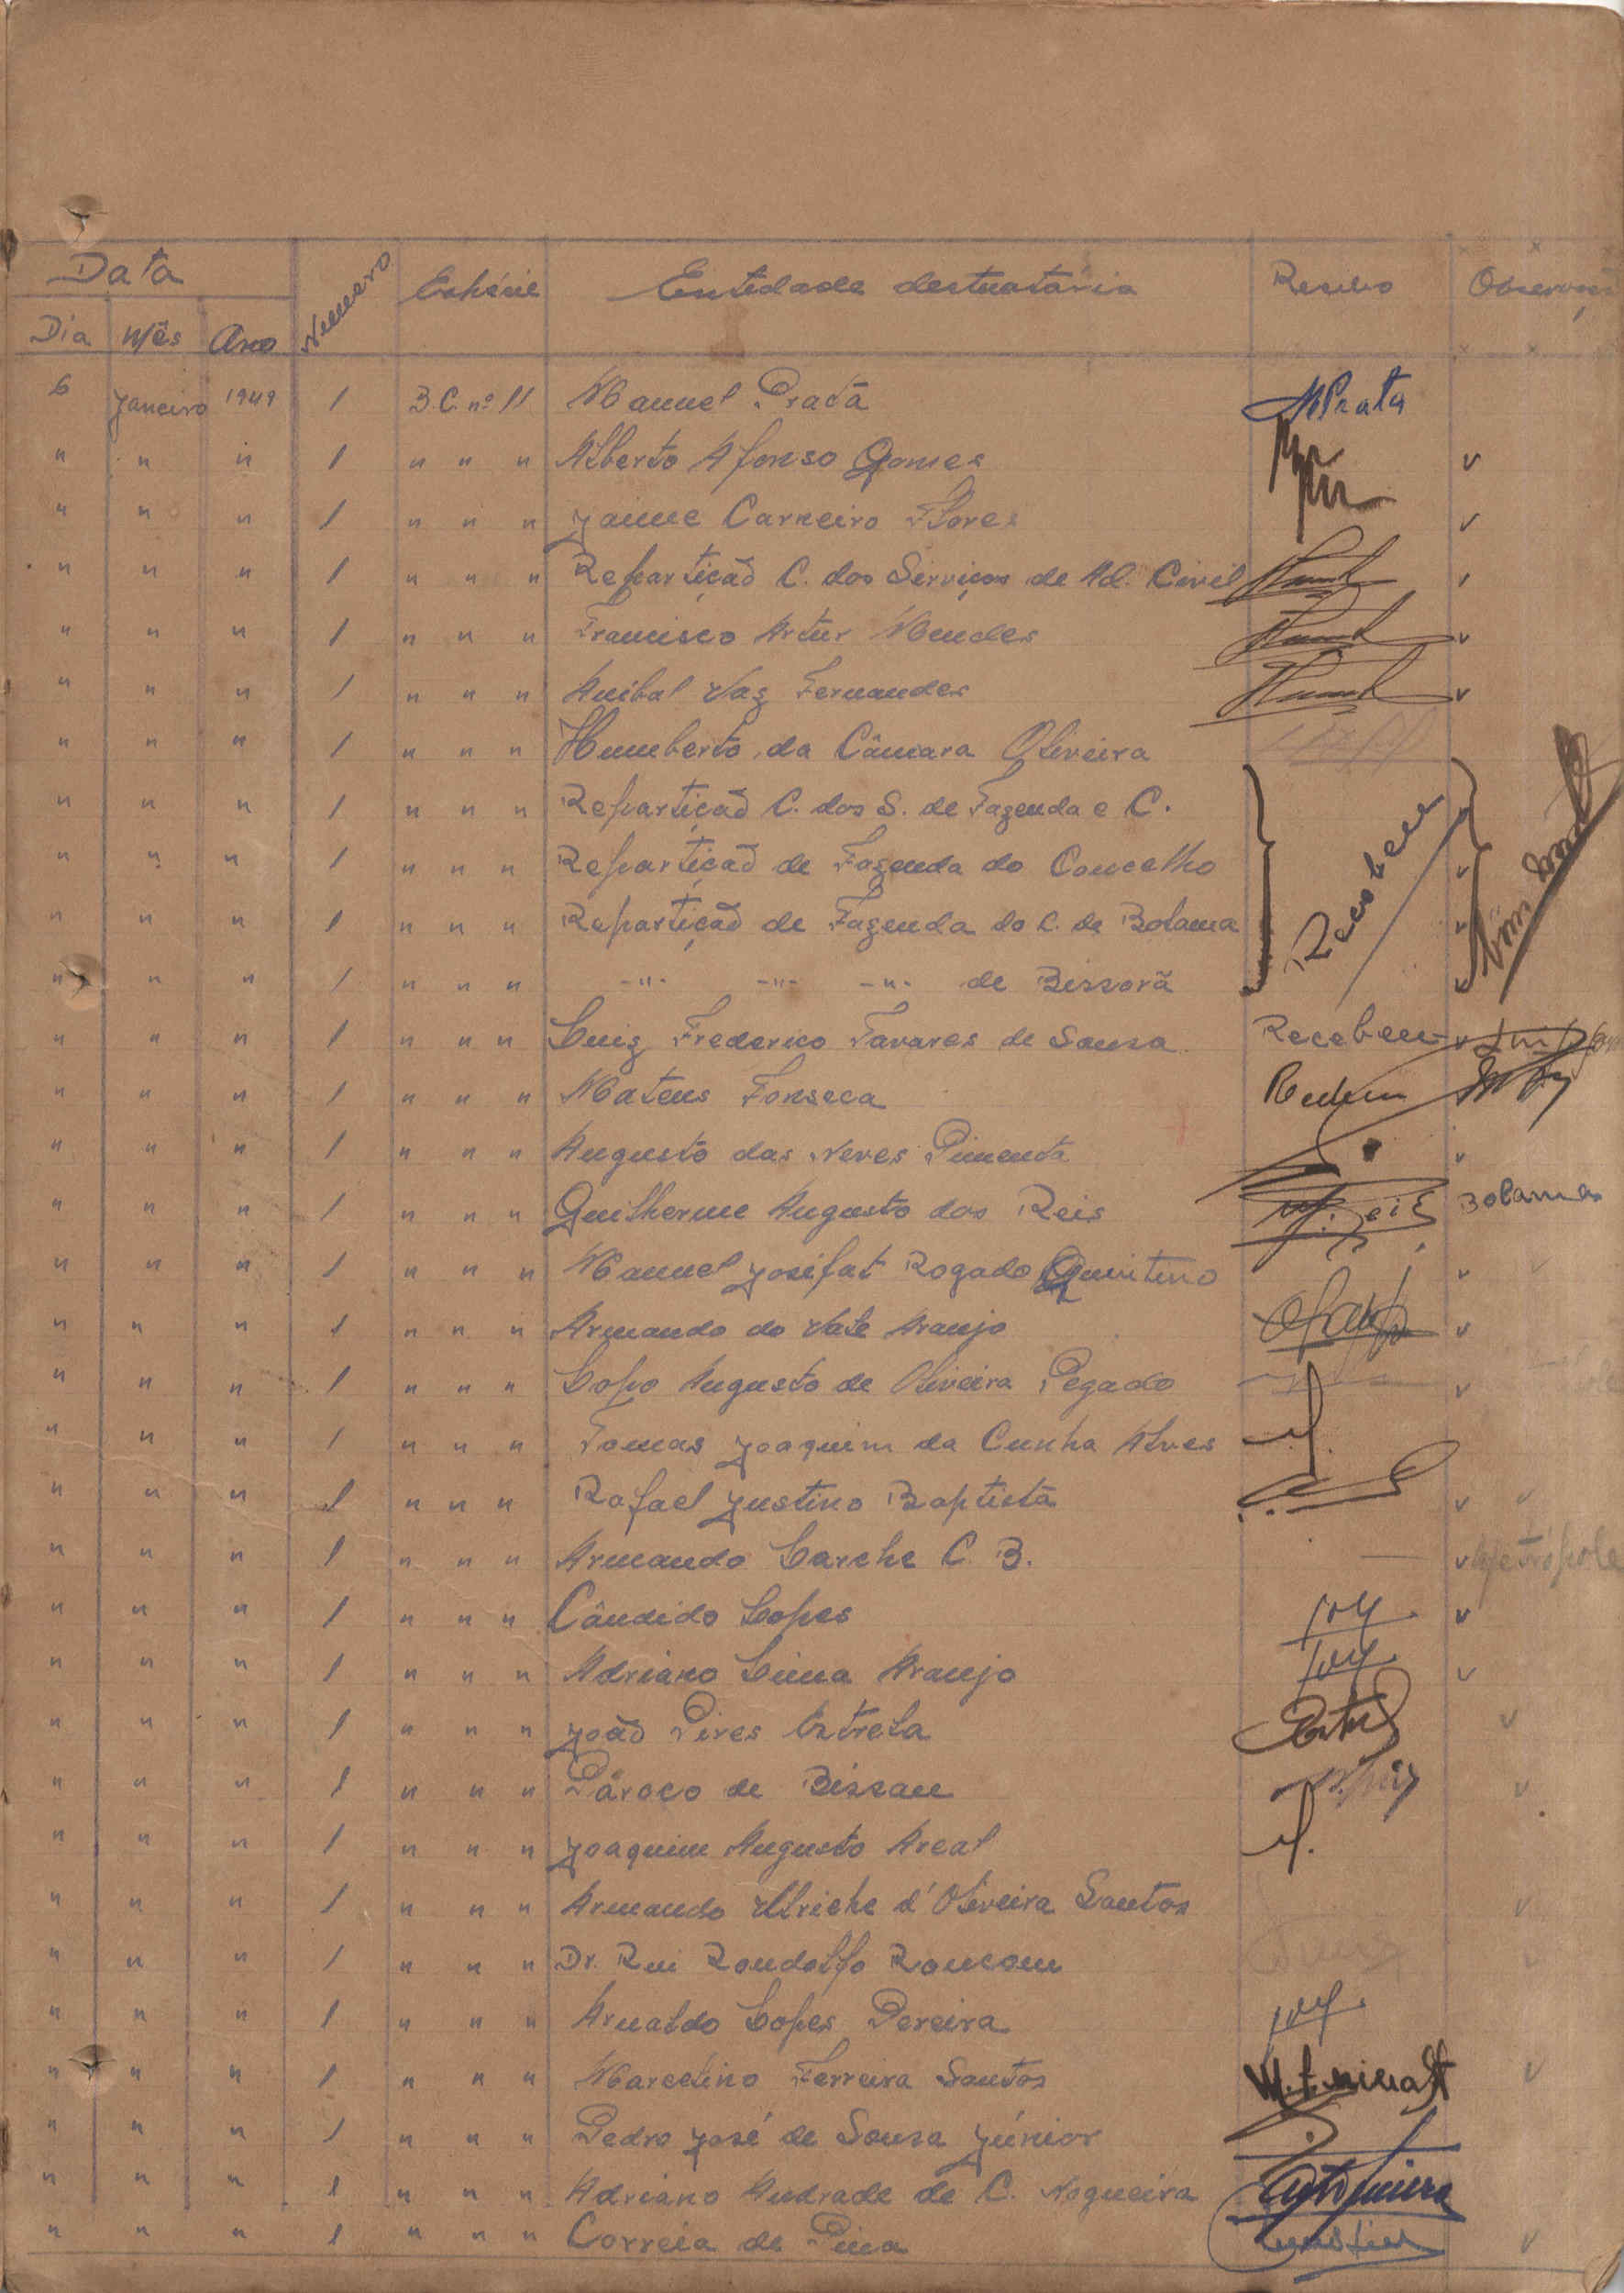 Data Numero Espécie Entidade destinatária Recibo
Dia Mês Ano
6 Janeiro 1949 1 B.C. nº 11 Manuel Pratã MPrata
" " " 1 " " " Alberto Afonso Gomes v
" " " 1 " " " Jaime Carneiro Flores v
" " " 1 " " " Repartiçaõ C. dos Serviços de Ad. Civil v
" " " 1 " " " Francisco Artur Mendes v
" " " 1 " " " Anibal Vaz Fernandes v
" " " 1 " " " Humberto da Câmara Oliveira
" " " 1 " " " Repartiçaõ C. dos S. de Fazenda e C. v
" " " 1 " " " Repartiçaõ de Fazenda do Concelho v
" " " 1 " " " Repartiçaõ de Fazenda do C. de Bolama Recebeu v
" " " 1 " " " -"- -"- -"- de Bissorã v
" " " 1 " " " Luiz Frederico Tavares de Sousa Recebeu v
" " " 1 " " " Mateus Fonseca
" " " 1 " " " Augusto das Neves Pimenta v
" " " 1 " " " Guilherme Augusto dos Reis Bolama
" " " 1 " " " Manuel Josifat Rogado Quintino v
" " " 1 " " " Armando do Vale Araujo v
" " " 1 " " " Lopo Augusto de Oliveira Pegado v
" " " 1 " " " Tomas Joaquim da Cunha Alves
" " " 1 " " " Rafael Justino Baptista v v
" " " 1 " " " Armando Larche C. B. — v Metrópole
" " " 1 " " " Cândido Lopes v
" " " 1 " " " Adriano Lima Araujo v
" " " 1 " " " Joaõ Pires Estrela v
" " " 1 " " " Pároco de Bissau v
" " " 1 " " " Joaquim Augusto Areal
" " " 1 " " " Armando Ulriche d'Oliveira Santos v
" " " 1 " " " Dr. Rui Rondolfo v
" " " 1 " " " Arnaldo Lopes Pereira
" " " 1 " " " Marcelino Ferreira Santos v
" " " 1 " " " Pedro José de Sousa Júnior
" " " 1 " " " Adriano Andrade de C. Nogueira
" " " 1 " " " Correia de Pina v